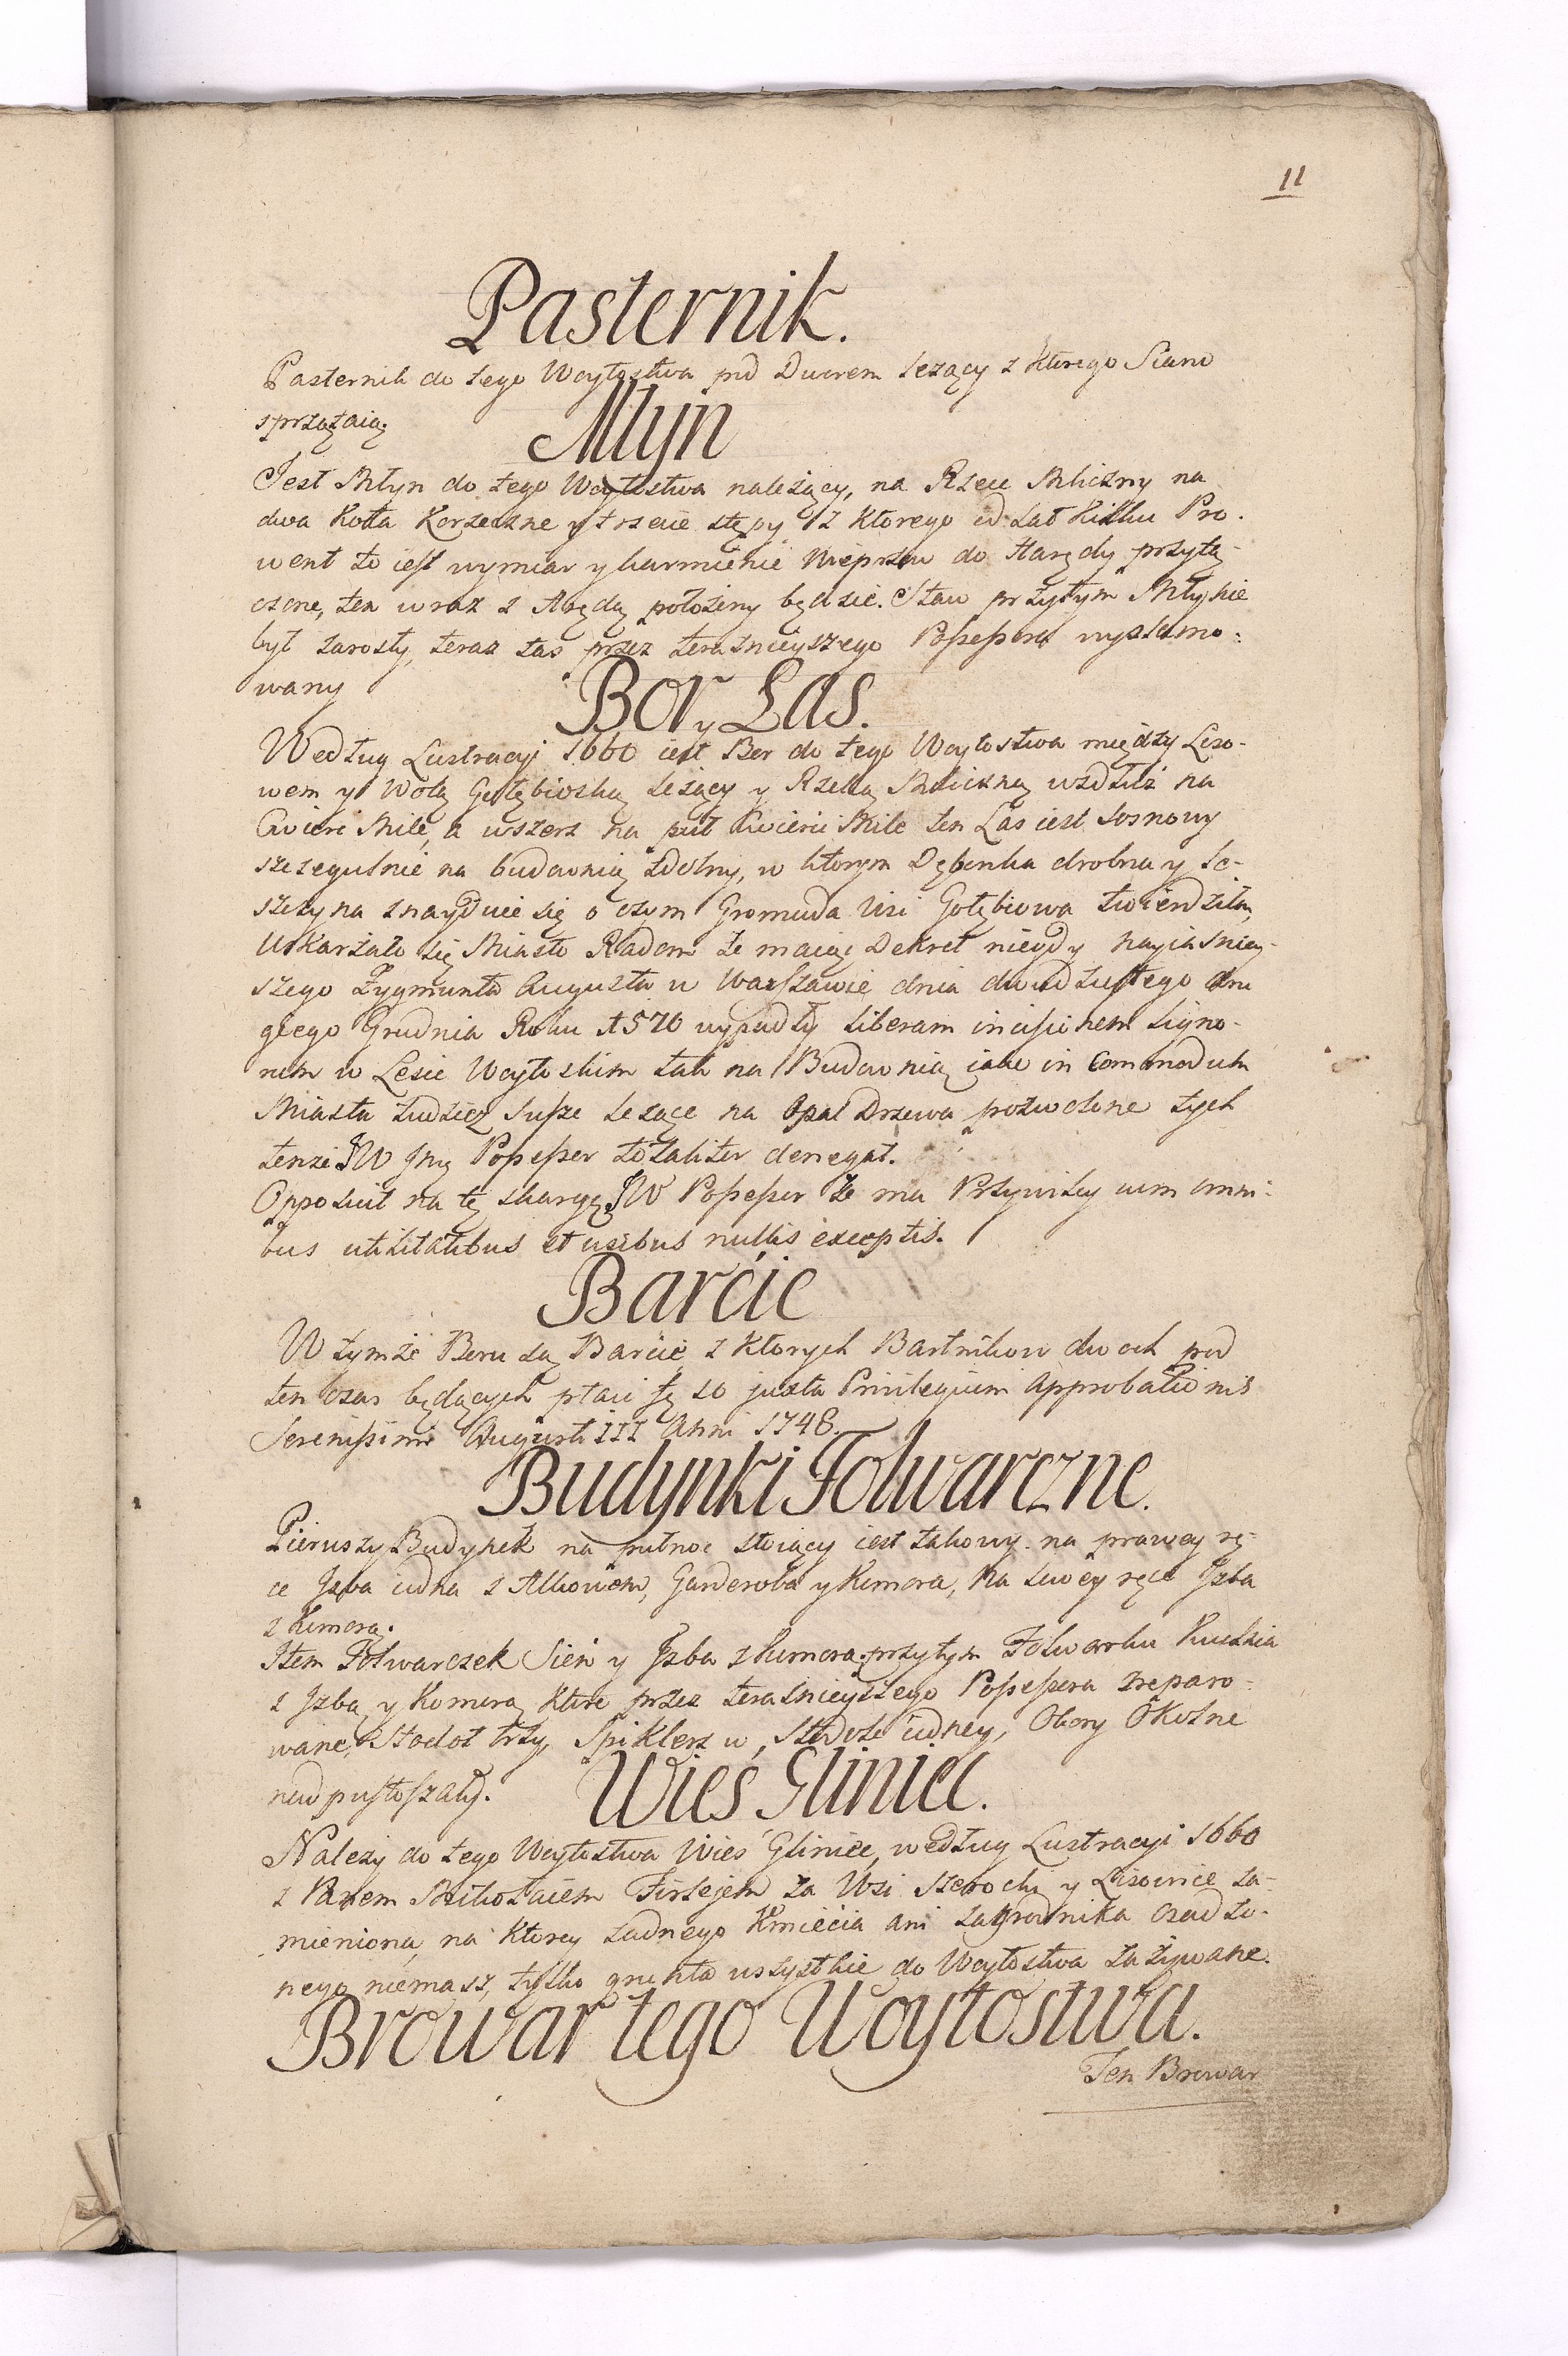 11
Pasternik.
Pasternik do tego Woytostwa pod Dworem lezący z ktorego Siano
sprzątaią.
Młyn
Jest Młyn do tego Woytostwa należący, na Rzece Mliczny na
dwa Kołła Korzeczne y trzecie stępy z ktorego od Lat Kilku Pro-
went to iest wymiar y karmienie Wieprzow do Harędy przyłą-
czone, ten wraz z Arędą położeny będzie. Staw przytym Młynie
był zarosły, teraz zas przez terasnieyszego Possessora wyszlamo-
wany
Bor y Las.
Według Lustracyi 1660 iest Bor do tego Woytostwa między Lezo-
wem y Wolą Gołębioską leżący y Rzeką Mliczną wzdłuż na
Cwierć Mile, a wszerz na puł Cwierci Mile ten Las iest sosnowy
szczegulnie na budownią zdolny, w ktorym Dębinka drobna y le-
szczyna znayduie się o czym Gromada Wsi Gołębiowa twierdziła,
Uskarżało się Miasto Radom że maiąc Dekret niegdy nayiasniey-
szego Zygmunta Augusta w Warszawie dnia dwudziestego dru
giego Grudnia Roku 1570 wypadły liberam incisionem ligno-
rum w Lesie Woytoskim tak na Budownią iako in Commodum
Miasta tudziez susze lezące na Opał Drzewa pozwolone tych
tenże JW Jmć Possessor totaliter denegat.
Opposuit na tę skargę JW Possessor że ma Przywiley cum omni-
bus utilitatibus et usibus nullis exceptis.
Barcie
W tymże Boru są Barcie, z ktorych Bartnikow dwoch pod
ten czas będących płaci fę 10 juxta Privilegium Approbationis
Serenissimi Augusti III Anni 1748.
Budynki Folwarczne.
Pierwszy Budynek na pułnoc stoiący iest takowy. na prawey rę-
ce Jzba iedna z Alkową, Garderoba y Komora, na lewey ręce Jzba
z Komorą.
Item Folwarczek Sień y Jzba z Komorą przytym Folwarku Kuchnia
z Jzbą y Komorą ktore przez terasnieyszego Possessora zreparo-
wane, Stodoł trzy, Spiklerz w Stodole iedney, Obory Okolne
nadpustoszały.
Wieś Gliniec.
Należy do tego Woytostwa Wieś Gliniec, według Lustracyi 1660
z Panem Mikołaiem Firlejem za Wsi Szeroch y Lisowice za-
mieniona, na ktorey zadnego Kmiecia ani zagrodnika osadzo-
nego niemasz, tylko grunta wszystkie do Woytostwa zażywane.
Browar tego Woytostwa.
Ten Browar